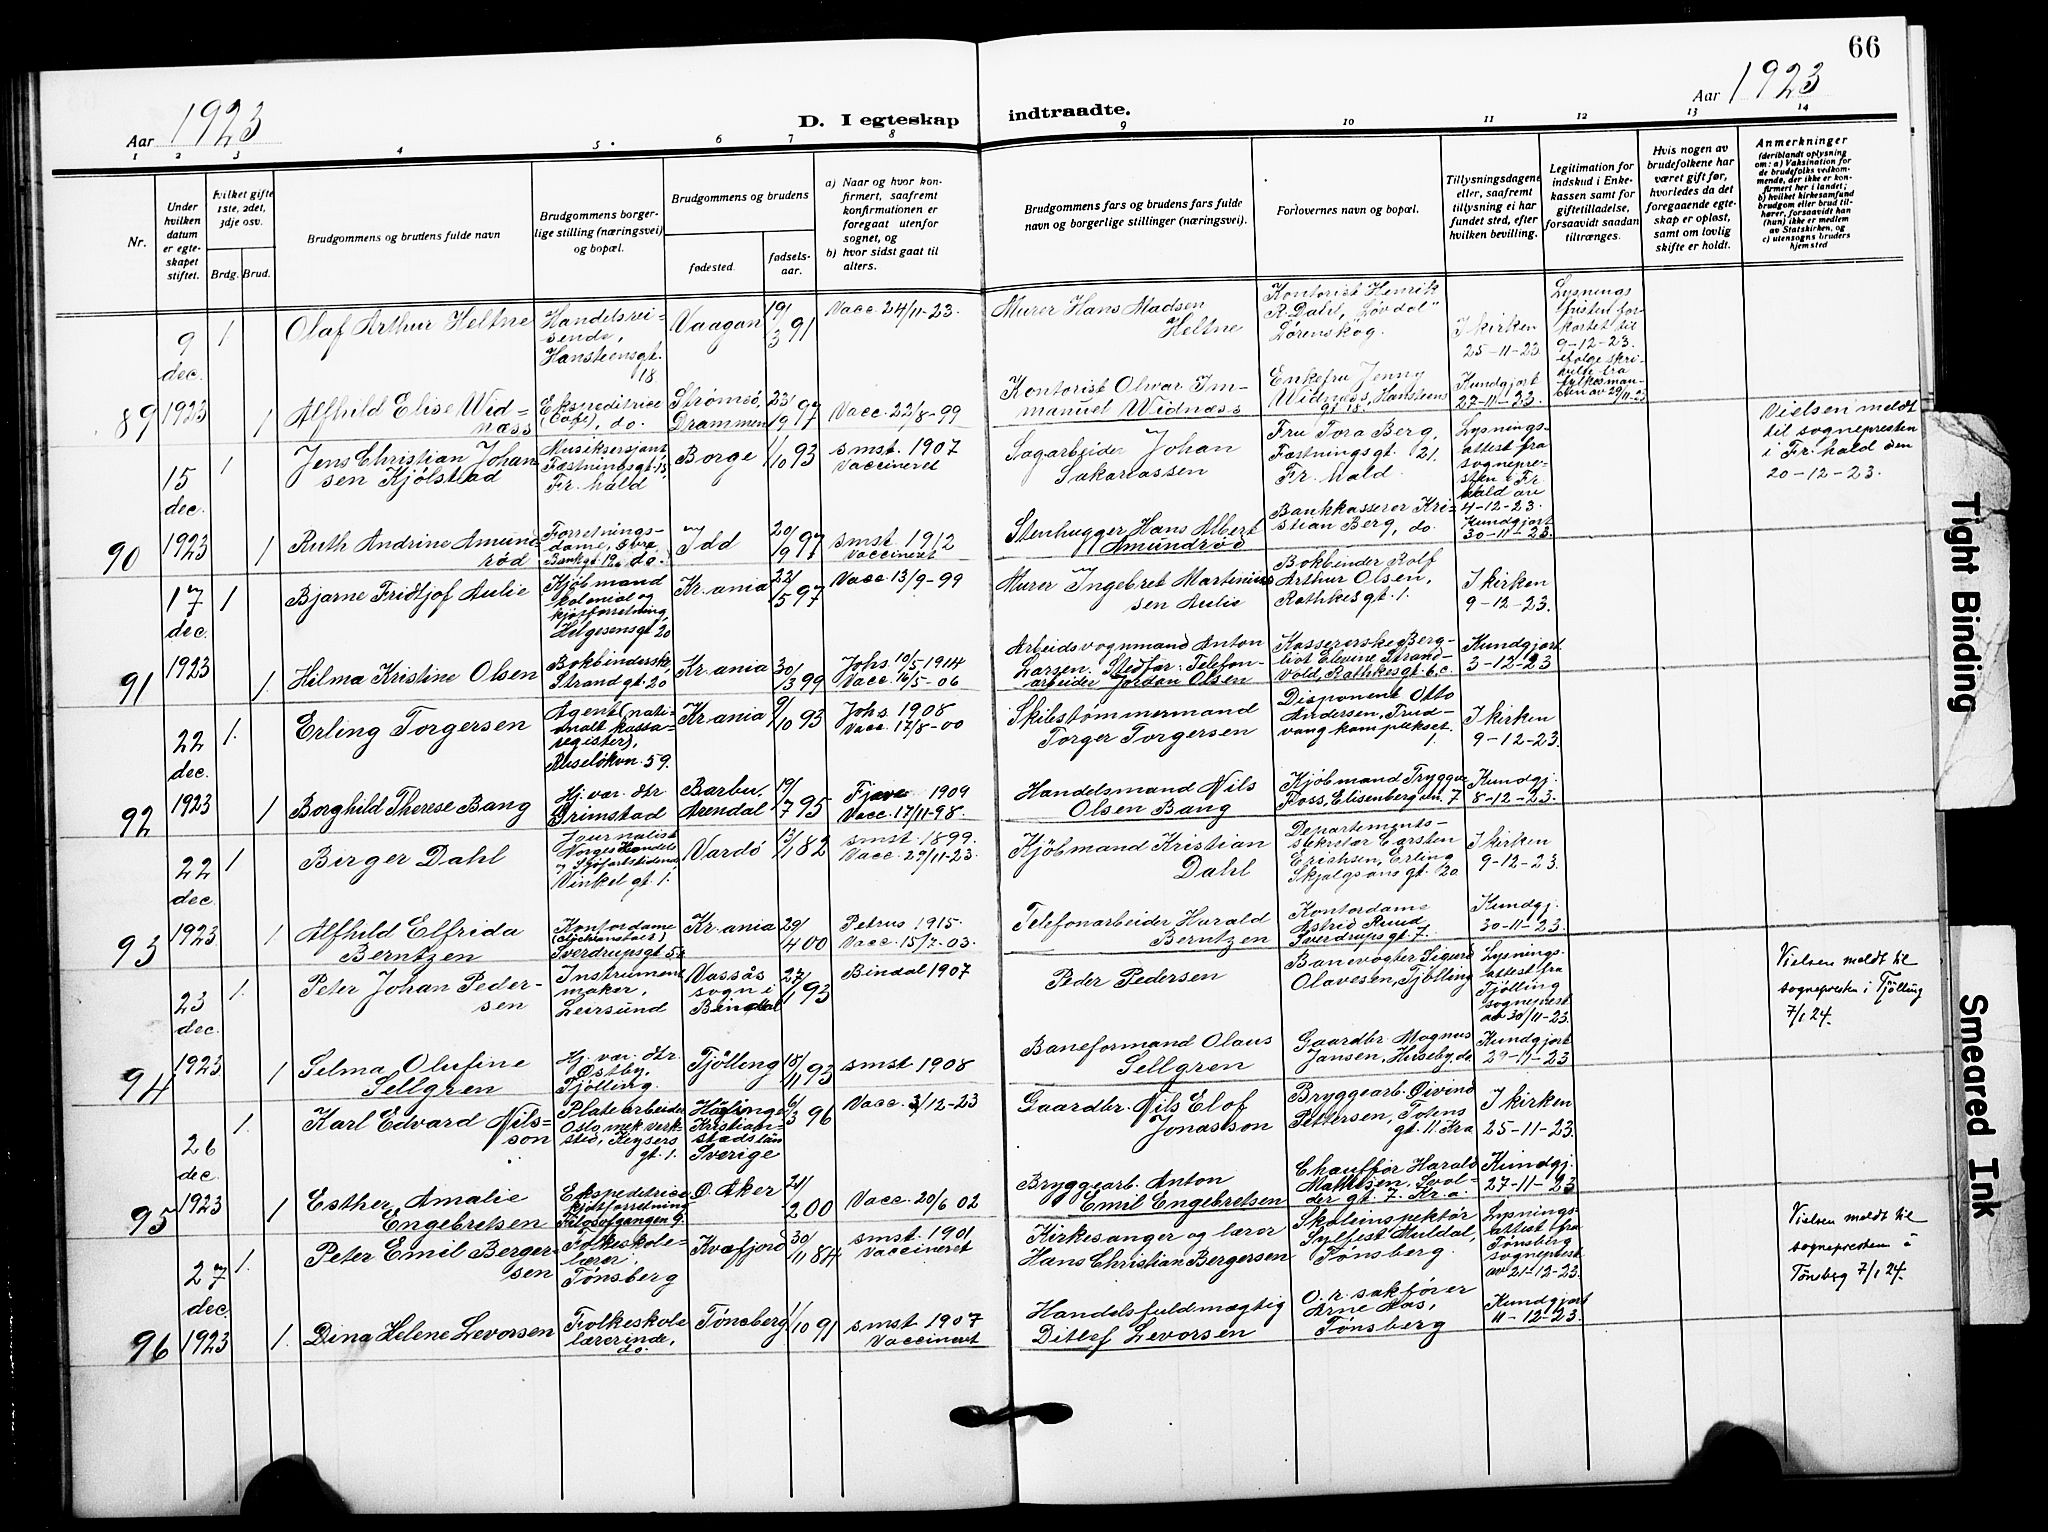 66
Aar 1923
D. I egteskap indtraadte.
Aar 1923
1 2 3 4 5 6 7 8 9 10 11 12 13 14
Nr.
Under hvilken datum er egteskapet stiftet.
hvilket gifte 1ste, 2det, 3dje osv.
Brdg. Brud.
Brudgommens og brudens fulde navn
Brudgommens borgerlige stilling (næringsvei) og bopæl.
Brudgommens og brudens
fødested.
fødselsaar.
a) Naar og hvor konfirmert, saafremt konfirmationen er foregaat utenfor sognet, og
b) hvor sidst gaat til alters.
Brudgommens fars og brudens fars fulde navn og borgerlige stillinger (næringsvei).
Forlovernes navn og bopæl.
Tillysningsdagene eller, saafremt tillysning ei har fundet sted, efter hvilken bevilling.
Legitimation for indskud i Enkekassen samt for giftetilladelse, forsaavidt saadan tiltrænges.
Hvis nogen av brudefolkene har været gift før, hvorledes da det foregaaende egteskap er opløst, samt om lovlig skifte er holdt.
Anmerkninger
(deriblandt oplysning om: a) Vaksination for de brudefolks vedkommende, der ikke er konfirmert her i landet; b) hvilket kirkesamfund brudgom eller brud tilhører, forsaavidt han (hun) ikke er medlem av Statskirken, og c) utensogns bruders hjemsted
89
9 dec. 1923
1
Olaf Arthur Heltne
Handelsreisende, Hansteensgt. 18
Vaagan
19/3 91
Vacc 24/11-23.
Murer Hans Madsen Heltne
Kontorist Henrik R. Dahl, "Løvdal" Lørenskog.
I kirken 25-11-23.
Lysningsfristen forkortet til 9-12-23. ifølge skrivelse fra fylkesmanden av 29/11-23
1
Alfhild Elise Widnæss
Ekspeditrice (Café), do.
Strømsø, Drammen
23/19 97
Vacc. 22/8-99
Kontorist Olvar Immanuel Widnæss
Enkefru Jenny Widnæss, Hansteensgt 18.
Kundgjort 27-11-23.
90
15 dec. 1923
1
Jens Christian Johansen Kjølstad
Musikersjant, Fæstningsgt. 15, Fr. hald
Borge
1/10 93
smst. 1907 Vaccineret
Sagarbeider Johan Sakariassen
Fru Tora Berg, Fæstningsgt. 21. Fr. hald.
Lysningsattest fra sognepresten i Fr hald av 4-12-23.
Vielsen meldt til sognepresten i Fr. hald den 20-12-23.
1
Ruth Andrine Amundrød
Forretningsdame, Bankgt. 19, do.
Idd
20/9 97
smst. 1912 Vaccineret
Stenhugger Hans Albert Amundrød
Bankkasserer Kristian Berg, do.
Kundgjort 30-11-23.
91
17 dec. 1923
1
Bjarne Fridtjof Aulie
Kjøbmand kolonial og kjøtforretning, Helgesensgt. 20
Kr.ania
22/5 97
Vacc 13/9-99
Murer Ingebret Martiniussen Aulie
Bokbinder Rolf Arthur Olsen, Rathkesgt. 1.
I kirken 9-12-23.
1.
Hilma Kristine Olsen
Bokbinderske, Strandgt. 20
Kr.ania
30/3 99
Johs. 10/5-1914 Vacc. 16/5-06
Arbeidsvognmand Anton Larsen. Stedfar: Telefonarbeider Jordan Olsen
Kassererske Bergliot Elevine Strandvold, Rathkesgt. 6, c.
Kundgjort 3-12-23
92
22 dec. 1923
1.
Erling Torgersen
Agent (nationalt kassaregister), Ruseløkvn. 59.
Kr.ania
9/10 93
Johs. 1908 Vacc. 17/8-00
Skibstømmermand Torger Torgersen
Disponent Otto Andersen, Trudvangkomplekset 1.
I kirken 9-12-23.
1
Borghild Therese Bang
Hj. vær. dtr Grimstad
Barbu, Arendal
19/7 95
Fjære 1909 Vacc. 17/11-98.
Handelsmand Nils Olsen Bang
Kjøbmand Tryggve Foss, Elisenbergvn. 7
Kundgj. 8-12-23.
93
22 dec. 1923
1
Birger Dahl
Journalist Norges Handels og Sjøfartstidende Vinkelgt. 1.
Vardø
13/11 82
smst. 1899. Vacc. 29/11-23.
Kjøbmand Kristian Dahl
Departementssekretær Carsten Erichsen, Erling Skjalgsøns gt. 20
I kirken 9-12-23.
1
Alfhild Elfrida Berntzen
Kontordame Sverdrupsgt 5
Kr.ania
29/4 00
Petrus 1915. Vacc. 15/7-03.
Telefonarbeider Harald Berntzen
Kontordame Astrid Ruud Sverdrupsgt 7.
Kundgj. 30-11-23.
94
23 dec. 1923
1.
Peter Johan Pedersen
Instrumentmaker, Leirsund
Vassås sogn i Bindal
27/1 93
Bindal 1907
Peder Pedersen
Banevogter Sigurd Olavesen, Tjølling
Lysningsattest fra Tjølling sogneprest av 30/11-23.
Vielsen meldt til sognepresten i Tjølling 7/1 24.
1
Selma Olufine Sellgren
Hj. vær. dtr. Østby, Tjølling.
Tjølling
18/11 93
smst 1908
Baneformand Olaus Sellgren
Gaardbr. Magnus Jansen, Huseby, do
Kundgjort 29-11-23
95
26 dec. 1923
1.
Karl Edvard Nilsson
Platearbeider Oslo mek. verksted, Keysers gt. 1.
Häglinge Kristianstads län Sverige
6/3 96
Vacc. 3/12-23
Gaardbr. Nils Elof Jonasson
Bryggearb. Øivind Pettersen, Totens gt. 11 Kra
I kirken 25-11-23.
1
Esther Amalie Engebretsen
Ekspeditrice kjøtforretning Filosofgangen 9.
Ø. Aker
24/2 00
Vacc. 20/6 02
Bryggearb. Anton Emil Engebretsen
Chauffør Harald Mathisen, Svoldergt. 7. Kr.a.
Kundgj. 27-11-23
96
27 dec. 1923
1.
Peter Emil Bergersen
Folkeskolelærer Tønsberg
Kvæfjord
30/11 84
smst. 1901 Vaccineret
Kirkesanger og lærer Hans Christian Bergersen
Skoleinspektør Sylfest Muldal, Tønsberg.
Lysningsattest fra Tønsberg sogneprest av 21-12-23.
Vielsen meldt til sognepresten i Tønsberg 7/1 24.
1.
Dina Helene Levorsen
Folkeskolelærerinde, do.
Tønsberg
1/10 91
smst. 1907 Vaccinert
Handelsfuldmægtig Ditlef Levorsen
O. r. sakfører Arne Aas, Tønsberg
Kundgjort 11-12-23.
Tight Binding
Smeared Ink